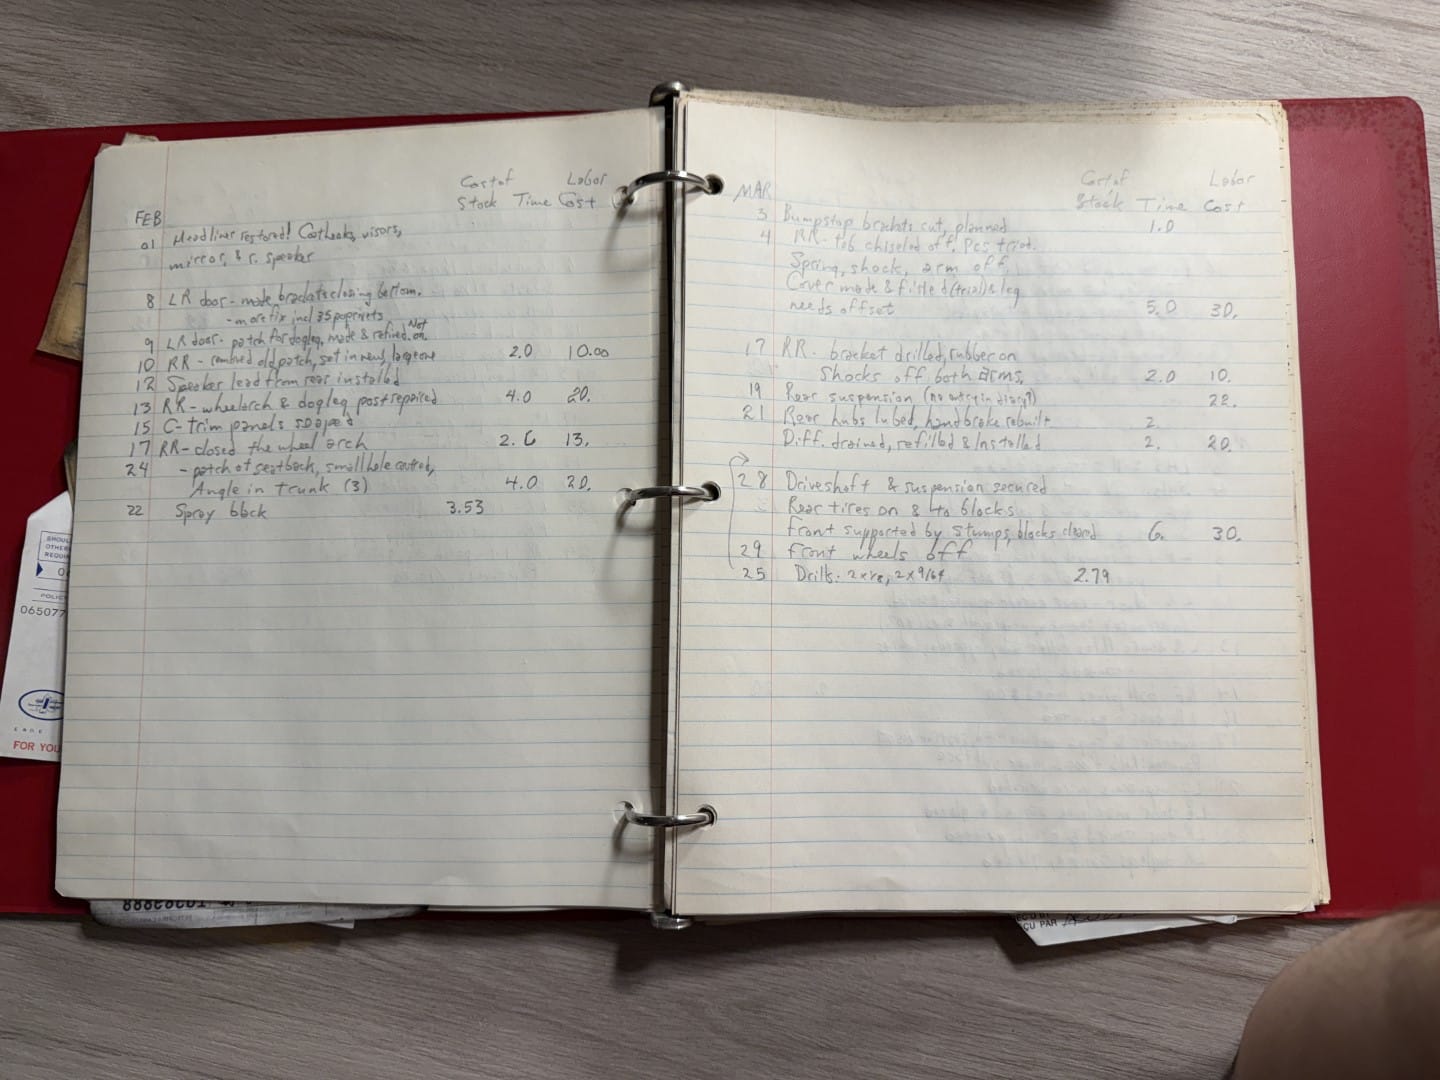 Cost of Labor
FEB Stock Time Cost
01 Headliner restored! Coathooks, visors,
mirror, & r. speaker
8 LR door - made brackets closing bottom.
- more fix incl 35 poprivets
9 LR door - patch for dogleg, made & refined. Not on.
10 RR - removed old patch, set in new, large one 2.0 10.00
12 Speaker lead from rear installed
13 RR - wheelarch & dogleg post repaired 4.0 20.
15 C-trim panels soaped
17 RR - closed the wheel arch 2.6 13.
24 - patch at seatback, small hole covered,
Angle in trunk (3) 4.0 20.
22 Spray black 3.53
Cost of Labor
MAR Stock Time Cost
3 Bumpstop brackets cut, planned 1.0
4 RR - tab chiseled off. Pcs tried.
Spring, shock, arm off.
Cover made & fitted (trial) & leg
needs offset 5.0 30.
17 RR - bracket drilled, rubber on
Shocks off both arms, 2.0 10.
19 Rear suspension (no entry in diary?) 22.
21 Rear hubs lubed, handbrake rebuilt 2.
Diff. drained, refilled & Installed 2. 20.
28 Driveshaft & suspension secured
Rear tires on & to blocks
Front supported by stumps, blocks cleared 6. 30.
29 Front wheels off
25 Drills - 2x1/8, 2x9/64 2.79
SHOUL
OTHER
REQUIR
POLIC
065077
FOR YOU
ÇU PAR